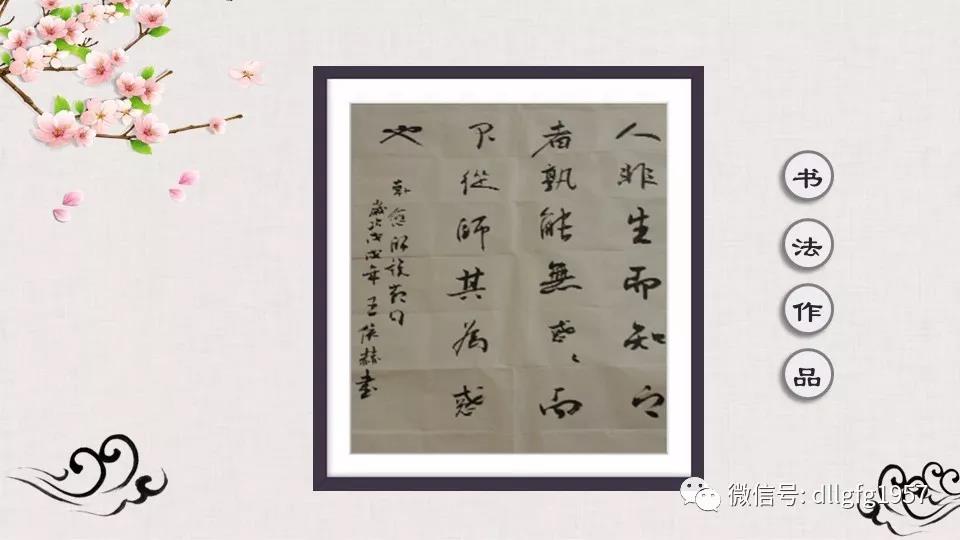 人非生而知之
者孰能無惑惑而
不從師其為惑
也
韓愈師說節句
歲次戊戌年王
書
书法作品
微信号: dllgfg1957